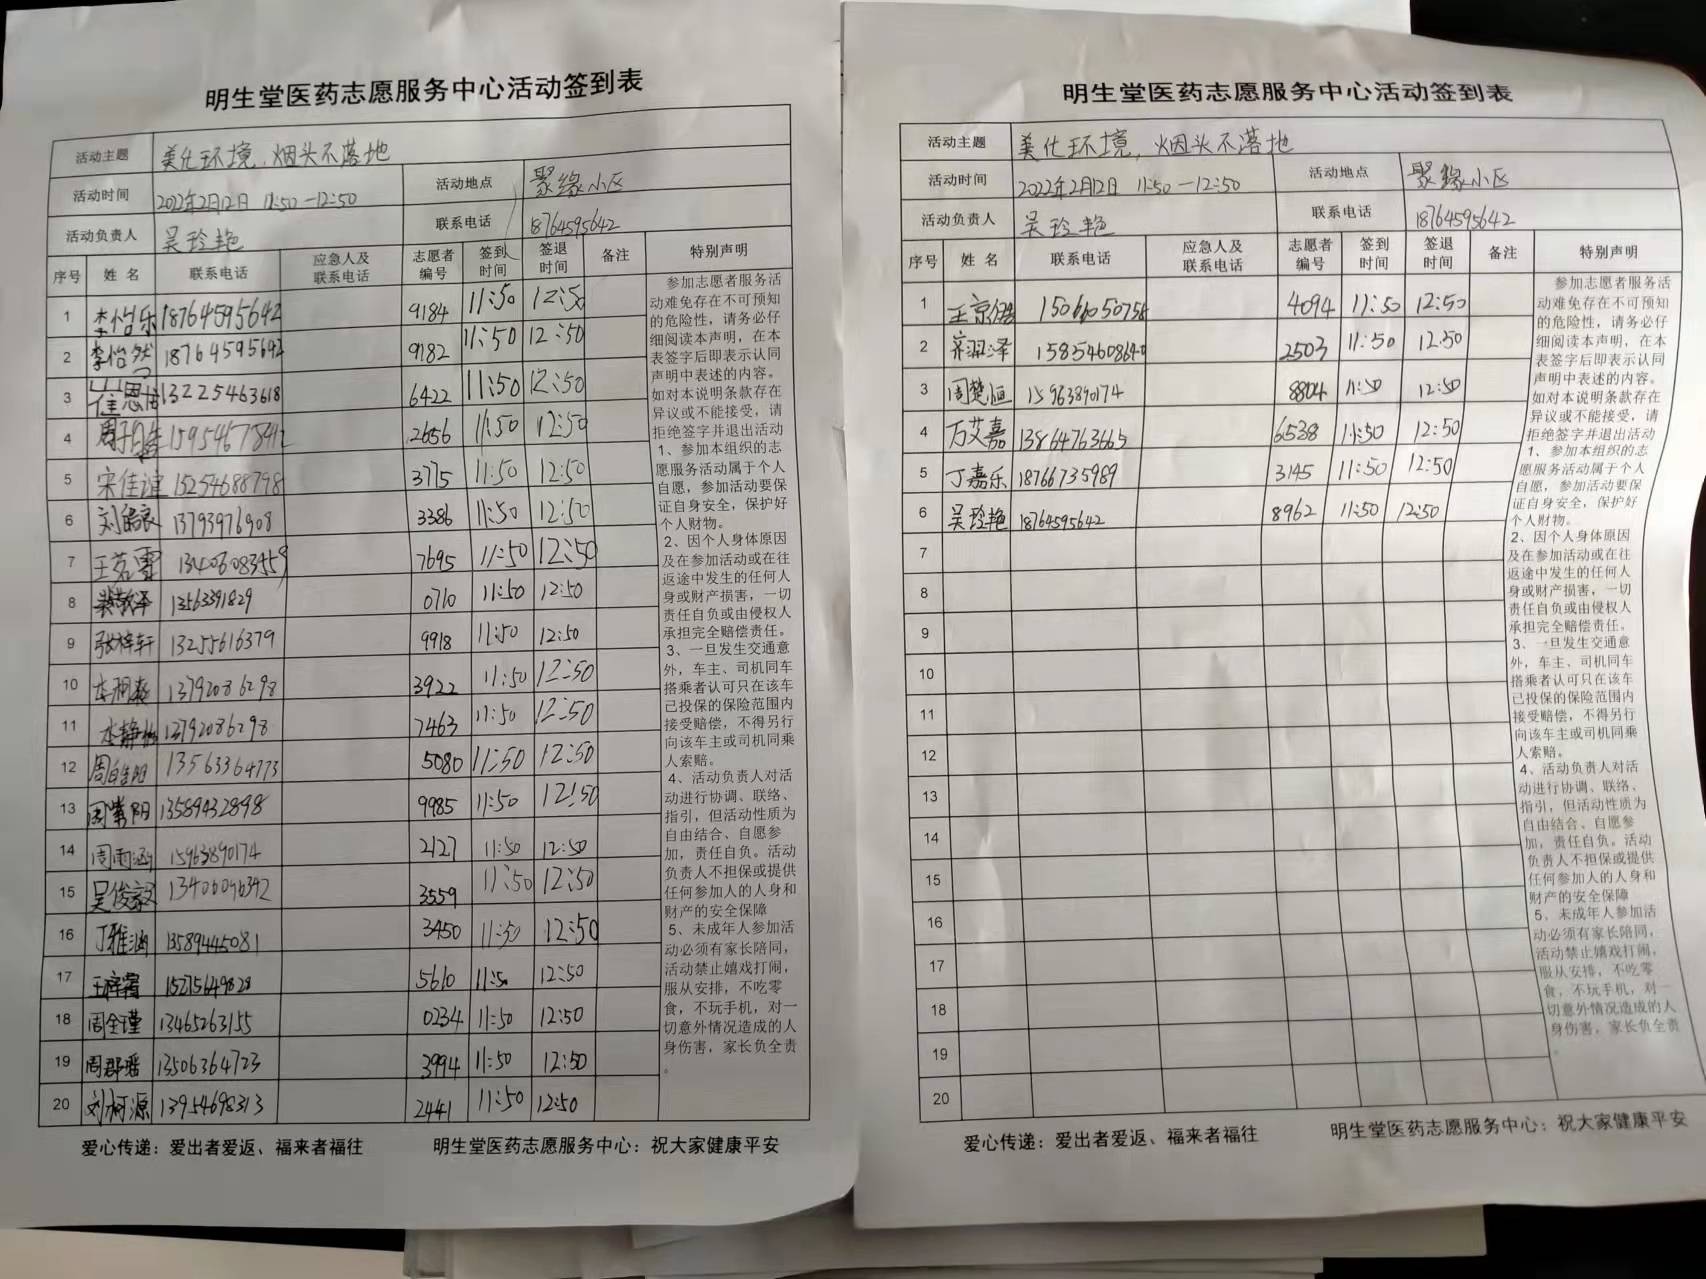 明生堂医药志愿服务中心活动签到表
活动主题 美化环境,烟头不落地
活动时间 2022年2月12日 11:50—12:50 活动地点 聚缘小区
活动负责人 吴玲艳 联系电话 18764595642
序号 姓名 联系电话 应急人及联系电话 志愿者编号 签到时间 签退时间 备注 特别声明
1 李怡乐 18764595642 9184 11:50 12:50
2 李怡然 18764595642 9182 11:50 12:50
3 崔恩 13225463618 6422 11:50 12:50
4 周子 15954677842 2656 11:50 12:50
5 宋佳谊 15254688798 3775 11:50 12:50
6 刘 13793976908 3386 11:50 12:50
7 王若 13406083559 7695 11:50 12:50
8 泽 13563391829 0710 11:50 12:50
9 张梓轩 13255616379 9918 11:50 12:50
10 13792086298 3922 11:50 12:50
11 静怡 13792086298 7463 11:50 12:50
12 周 阳 13563364773 5080 11:50 12:50
13 周 阳 13589432898 9985 11:50 12:50
14 周雨涵 15963890174 2127 11:50 12:50
15 吴俊 13406096342 3559 11:50 12:50
16 丁雅涵 13589445081 3450 11:50 12:50
17 王 15275649828 5610 11:50 12:50
18 周全瑾 13465263155 0234 11:50 12:50
19 周郡瑶 13506364723 3994 11:50 12:50
20 刘柯源 13954698313 2441 11:50 12:50
参加志愿者服务活
动难免存在不可预知
的危险性,请务必仔
细阅读本声明,在本
表签字后即表示认同
声明中表述的内容。
如对本说明条款存在
异议或不能接受,请
拒绝签字并退出活动
1、参加本组织的志
愿服务活动属于个人
自愿,参加活动要保
证自身安全,保护好
个人财物。
2、因个人身体原因
及在参加活动或在往
返途中发生的任何人
身或财产损害,一切
责任自负或由侵权人
承担完全赔偿责任。
3、一旦发生交通意
外,车主、司机同车
搭乘者认可只在该车
已投保的保险范围内
接受赔偿,不得另行
向该车主或司机同乘
人索赔。
4、活动负责人对活
动进行协调、联络、
指引,但活动性质为
自由结合、自愿参
加,责任自负。活动
负责人不担保或提供
任何参加人的人身和
财产的安全保障
5、未成年人参加活
动必须有家长陪同,
活动禁止嬉戏打闹,
服从安排,不吃零
食,不玩手机,对一
切意外情况造成的人
身伤害,家长负全责
。
爱心传递:爱出者爱返、福来者福往 明生堂医药志愿服务中心:祝大家健康平安
明生堂医药志愿服务中心活动签到表
活动主题 美化环境,烟头不落地
活动时间 2022年2月12日 11:50—12:50 活动地点 聚缘小区
活动负责人 吴玲艳 联系电话 18764595642
序号 姓名 联系电话 应急人及联系电话 志愿者编号 签到时间 签退时间 备注 特别声明
1 王京 4094 11:50 12:50
2 泽 15854608640 2503 11:50 12:50
3 周楚恒 15963890174 8804 11:50 12:50
4 万艾嘉 13864763665 6538 11:50 12:50
5 丁嘉乐 18766735989 3145 11:50 12:50
6 吴玲艳 18764595642 8962 11:50 12:50
7
8
9
10
11
12
13
14
15
16
17
18
19
20
参加志愿者服务活
动难免存在不可预知
的危险性,请务必仔
细阅读本声明,在本
表签字后即表示认同
声明中表述的内容。
如对本说明条款存在
异议或不能接受,请
拒绝签字并退出活动
1、参加本组织的志
愿服务活动属于个人
自愿,参加活动要保
证自身安全,保护好
个人财物。
2、因个人身体原因
及在参加活动或在往
返途中发生的任何人
身或财产损害,一切
责任自负或由侵权人
承担完全赔偿责任。
3、一旦发生交通意
外,车主、司机同车
搭乘者认可只在该车
已投保的保险范围内
接受赔偿,不得另行
向该车主或司机同乘
人索赔。
4、活动负责人对活
动进行协调、联络、
指引,但活动性质为
自由结合、自愿参
加,责任自负。活动
负责人不担保或提供
任何参加人的人身和
财产的安全保障
5、未成年人参加活
动必须有家长陪同,
活动禁止嬉戏打闹,
服从安排,不吃零
食,不玩手机,对一
切意外情况造成的人
身伤害,家长负全责
。
爱心传递:爱出者爱返、福来者福往 明生堂医药志愿服务中心:祝大家健康平安